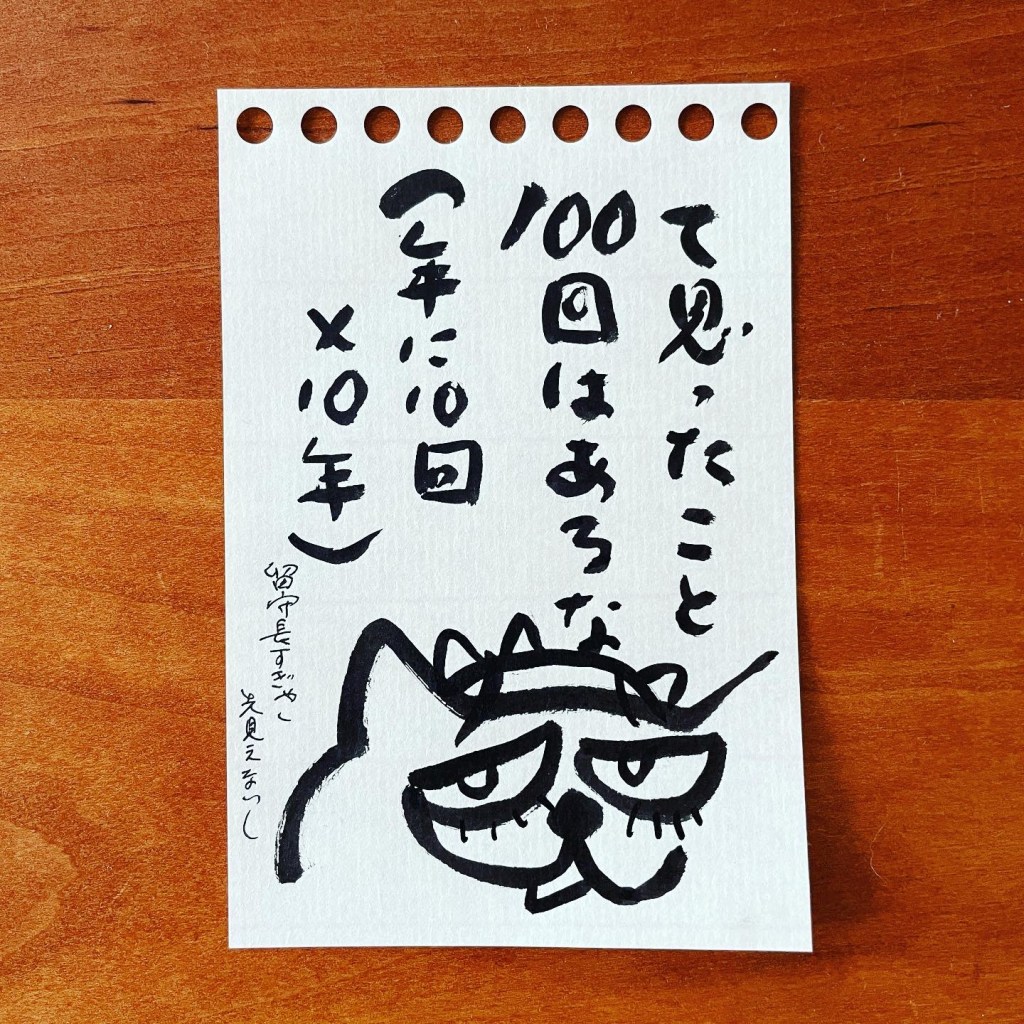 て思ったこと
100回はあろな
(年に10回
×10年)
留守長すぎや
先見えないし